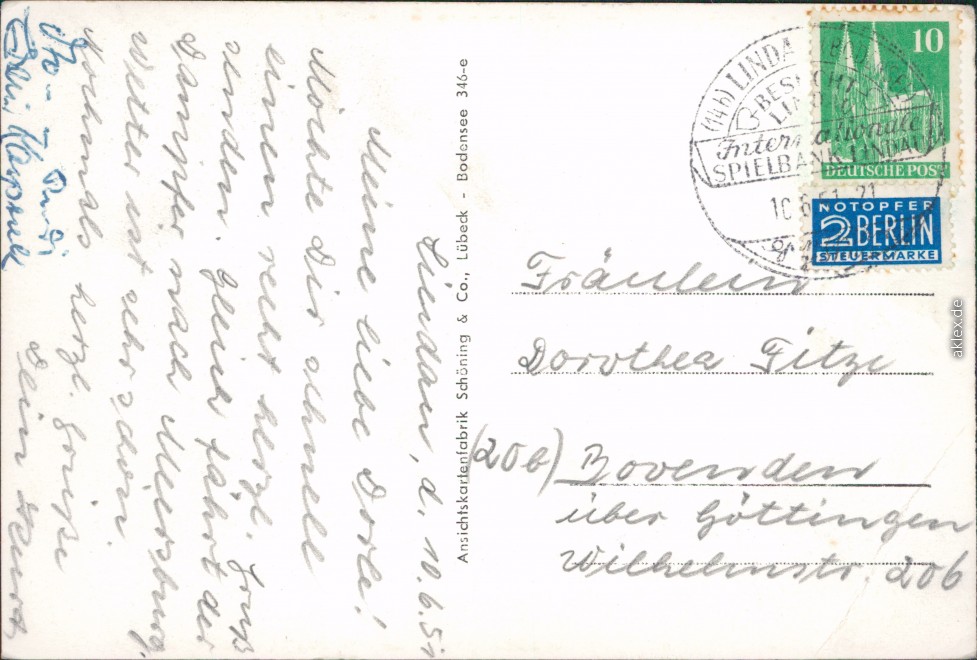 Lindau, d. 10.6.51
Meine liebe Dorle!
Möchte Dir schnell
einen recht herzl. Gruß
senden. Gleich fährt der
Dampfer nach Meersburg.
Wetter ist sehr schön
Nochmals herzl. Grüße
Dein
Rudi
Ansichtskartenfabrik Schöning & Co., Lübeck - Bodensee 346-e
10
DEUTSCHE POST
NOTOPFER
2 BERLIN
STEUERMARKE
(14b) LINDAU
BESUCHT
Internationale
SPIELBANK LINDAU
10.6.51 21
Fräulein
Dorothea Fitze
(20b) Bovenden
über Göttingen
Wilhelmstr. 206
aklex.de